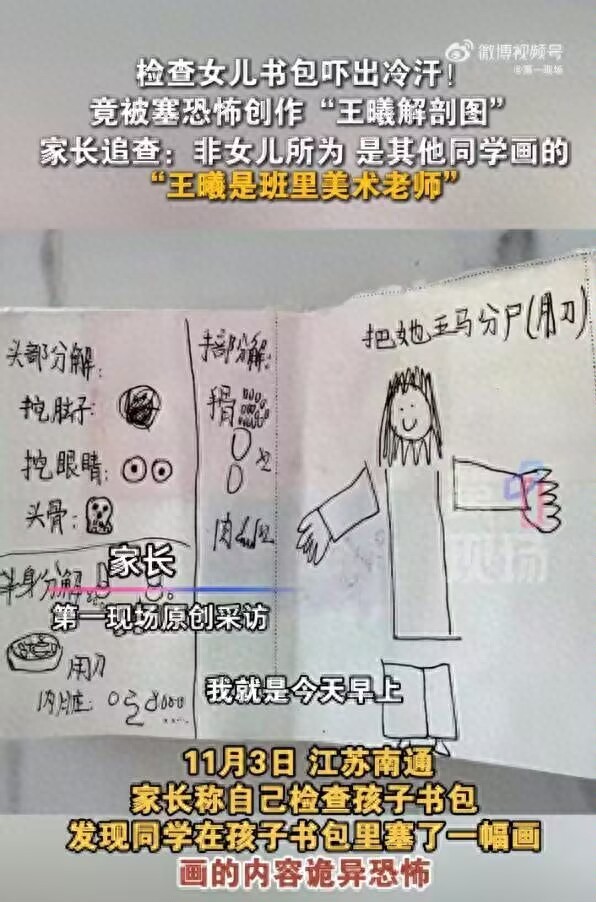 微博视频号
@第一现场
检查女儿书包吓出冷汗！
竟被塞恐怖创作“王曦解剖图”
家长追查：非女儿所为 是其他同学画的
“王曦是班里美术老师”
把她五马分尸(用刀)
头部分解：
挖脑子：
挖眼睛：
头骨：
半身分解：
用刀
内脏：
手部分解：
手骨
肉
现场
家长
第一现场原创采访
我就是今天早上
11月3日 江苏南通
家长称自己检查孩子书包
发现同学在孩子书包里塞了一幅画
画的内容诡异恐怖